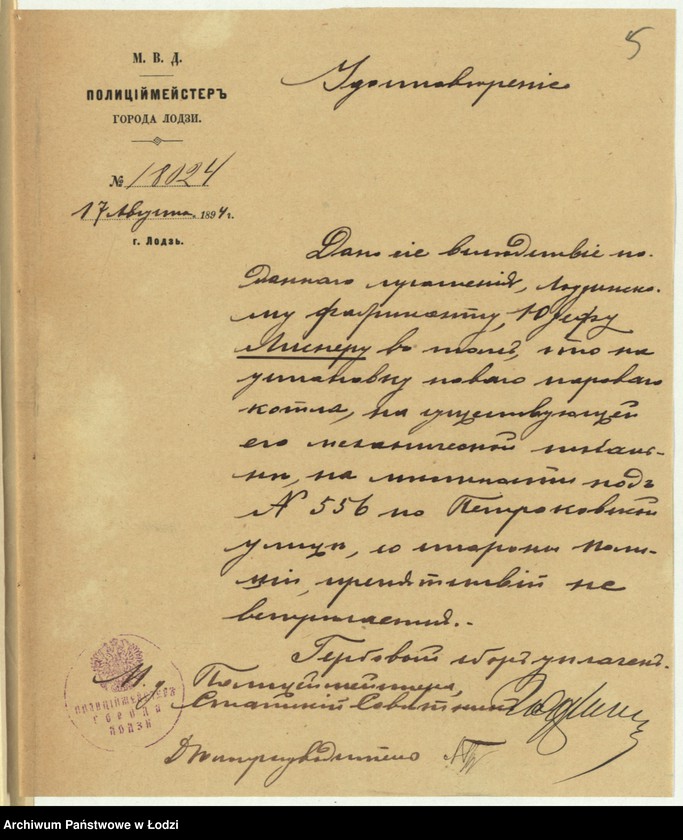 5
М. В. Д.
ПОЛИЦІЙМЕЙСТЕРЪ
ГОРОДА ЛОДЗИ.
№ 18024
17 Августа 1894 г.
г. Лодзь.
Удостоверение
Дано сіе вследствіе по-
даннаго прошенія, Лодзинско-
му фабриканту, Юзефу
во томъ, что на
установку новаго пароваго
котла, на существующей
его механической ткаль-
ни, на местности подъ
№ 556 по Петроковской
улице, со стороны поли-
ціи, препятствій не
встречается.-
Гербовый сборъ уплаченъ.
И. д. Полиціймейстера,
Статскій Советникъ
ПОЛИЦІЙМЕЙСТЕР
ГОРОДА
ЛОДЗИ
Делопроизводитель
Archiwum Państwowe w Łodzi